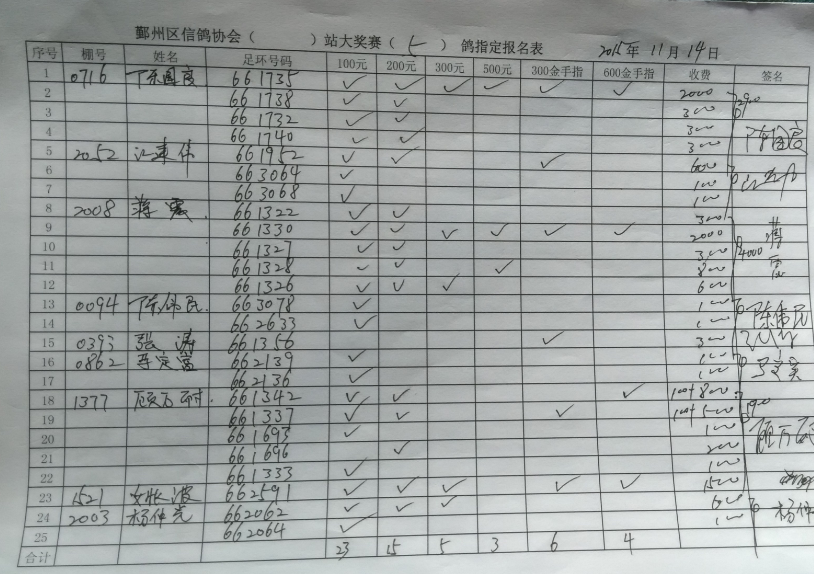 鄞州区信鸽协会( )站大奖赛( 5 )鸽指定报名表 2015年11月14日
序号 棚号 姓名 足环号码 100元 200元 300元 500元 300金手指 600金手指 收费 签名
1 0716 陈国度 661735 ✓ ✓ ✓ ✓ ✓ ✓ 2000
2 661738 ✓ ✓ 300
3 661732 ✓ ✓ 300
4 661740 ✓ ✓ 300
5 2052 661952 ✓ ✓ ✓ 600
6 663064 ✓ 100
7 663068 ✓ 100
8 2008 蒋 661322 ✓ ✓ 300
9 661330 ✓ ✓ ✓ ✓ ✓ ✓ 2000
10 661327 ✓ ✓ 300 4000
11 661328 ✓ ✓ 800
12 661326 ✓ ✓ ✓ 600
13 0094 陈伟民 663078 ✓ 100 陈伟民
14 662633 ✓ 100
15 0393 张涛 661356 ✓ 300
16 0862 662139 ✓ 100
17 662136 ✓ 100
18 1377 顾万耐 661342 ✓ ✓ ✓
19 661337 ✓ ✓ ✓
20 661693 ✓ 100
21 661696 ✓ 200
22 661333 ✓ 100
23 1521 662591 ✓ ✓ ✓ ✓ ✓ 1500
24 2003 杨仲 662062 ✓ ✓ ✓ 600 杨仲
25 662064 ✓ 100
合计 23 15 5 3 6 4